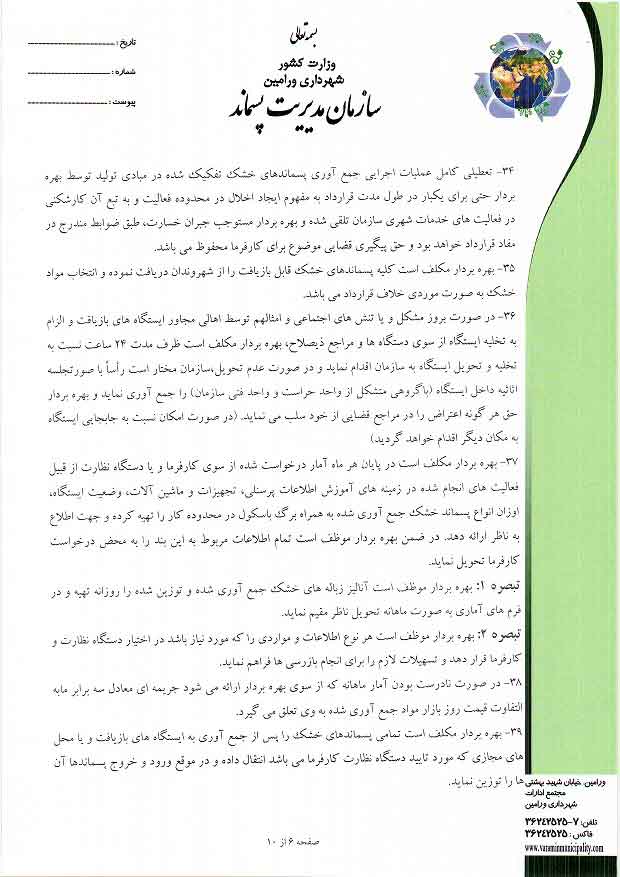 بسمه تعالی
وزارت کشور
شهرداری ورامین
سازمان مدیریت پسماند
تاریخ :
شماره :
پیوست :
۳۴- تعطیلی کامل عملیات اجرایی جمع آوری پسماندهای خشک تفکیک شده در مبادی تولید توسط بهره
بردار حتی برای یکبار در طول مدت قرارداد به مفهوم ایجاد اخلال در محدوده فعالیت و به تبع آن کارشکنی
در فعالیت های خدمات شهری سازمان تلقی شده و بهره بردار مستوجب جبران خسارت، طبق ضوابط مندرج در
مفاد قرارداد خواهد بود و حق پیگیری قضایی موضوع برای کارفرما محفوظ می باشد.
۳۵- بهره بردار مکلف است کلیه پسماندهای خشک قابل بازیافت را از شهروندان دریافت نموده و انتخاب مواد
خشک به صورت موردی خلاف قرارداد می باشد.
۳۶- در صورت بروز مشکل و یا تنش های اجتماعی و امثالهم توسط اهالی مجاور ایستگاه های بازیافت و الزام
به تخلیه ایستگاه از سوی دستگاه ها و مراجع ذیصلاح، بهره بردار مکلف است ظرف مدت ۲۴ ساعت نسبت به
تخلیه و تحویل ایستگاه به سازمان اقدام نماید و در صورت عدم تحویل،سازمان مختار است رأساً با صورتجلسه
اثاثیه داخل ایستگاه (باگروهی متشکل از واحد حراست و واحد فنی سازمان) را جمع آوری نماید و بهره بردار
حق هر گونه اعتراض را در مراجع قضایی از خود سلب می نماید. (در صورت امکان نسبت به جابجایی ایستگاه
به مکان دیگر اقدام خواهد گردید)
۳۷- بهره بردار مکلف است در پایان هر ماه آمار درخواست شده از سوی کارفرما و یا دستگاه نظارت از قبیل
فعالیت های انجام شده در زمینه های آموزش اطلاعات پرسنلی، تجهیزات و ماشین آلات، وضعیت ایستگاه،
اوزان انواع پسماند خشک جمع آوری شده به همراه برگ باسکول در محدوده کار را تهیه کرده و جهت اطلاع
به ناظر ارائه دهد. در ضمن بهره بردار موظف است تمام اطلاعات مربوط به این بند را به محض درخواست
کارفرما تحویل نماید.
تبصره ۱: بهره بردار موظف است آنالیز زباله های خشک جمع آوری شده و توزین شده را روزانه تهیه و در
فرم های آماری به صورت ماهانه تحویل ناظر مقیم نماید.
تبصره ۲: بهره بردار موظف است هر نوع اطلاعات و مواردی را که مورد نیاز باشد در اختیار دستگاه نظارت و
کارفرما قرار دهد و تسهیلات لازم را برای انجام بازرسی ها فراهم نماید.
۳۸- در صورت نادرست بودن آمار ماهانه که از سوی بهره بردار ارائه می شود جریمه ای معادل سه برابر مابه
التفاوت قیمت روز بازار مواد جمع آوری شده به وی تعلق می گیرد.
۳۹- بهره بردار مکلف است تمامی پسماندهای خشک را پس از جمع آوری به ایستگاه های بازیافت و یا محل
های مجازی که مورد تایید دستگاه نظارت کارفرما می باشد انتقال داده و در موقع ورود و خروج پسماندها آن
ها را توزین نماید.
ورامین، خیابان شهید بهشتی
مجتمع ادارات
شهرداری ورامین
تلفن: ۷-۳۶۲۴۲۵۲۵
فاکس : ۳۶۲۴۲۵۲۵
www.varaminmunicipality.com
صفحه ۶ از ۱۰